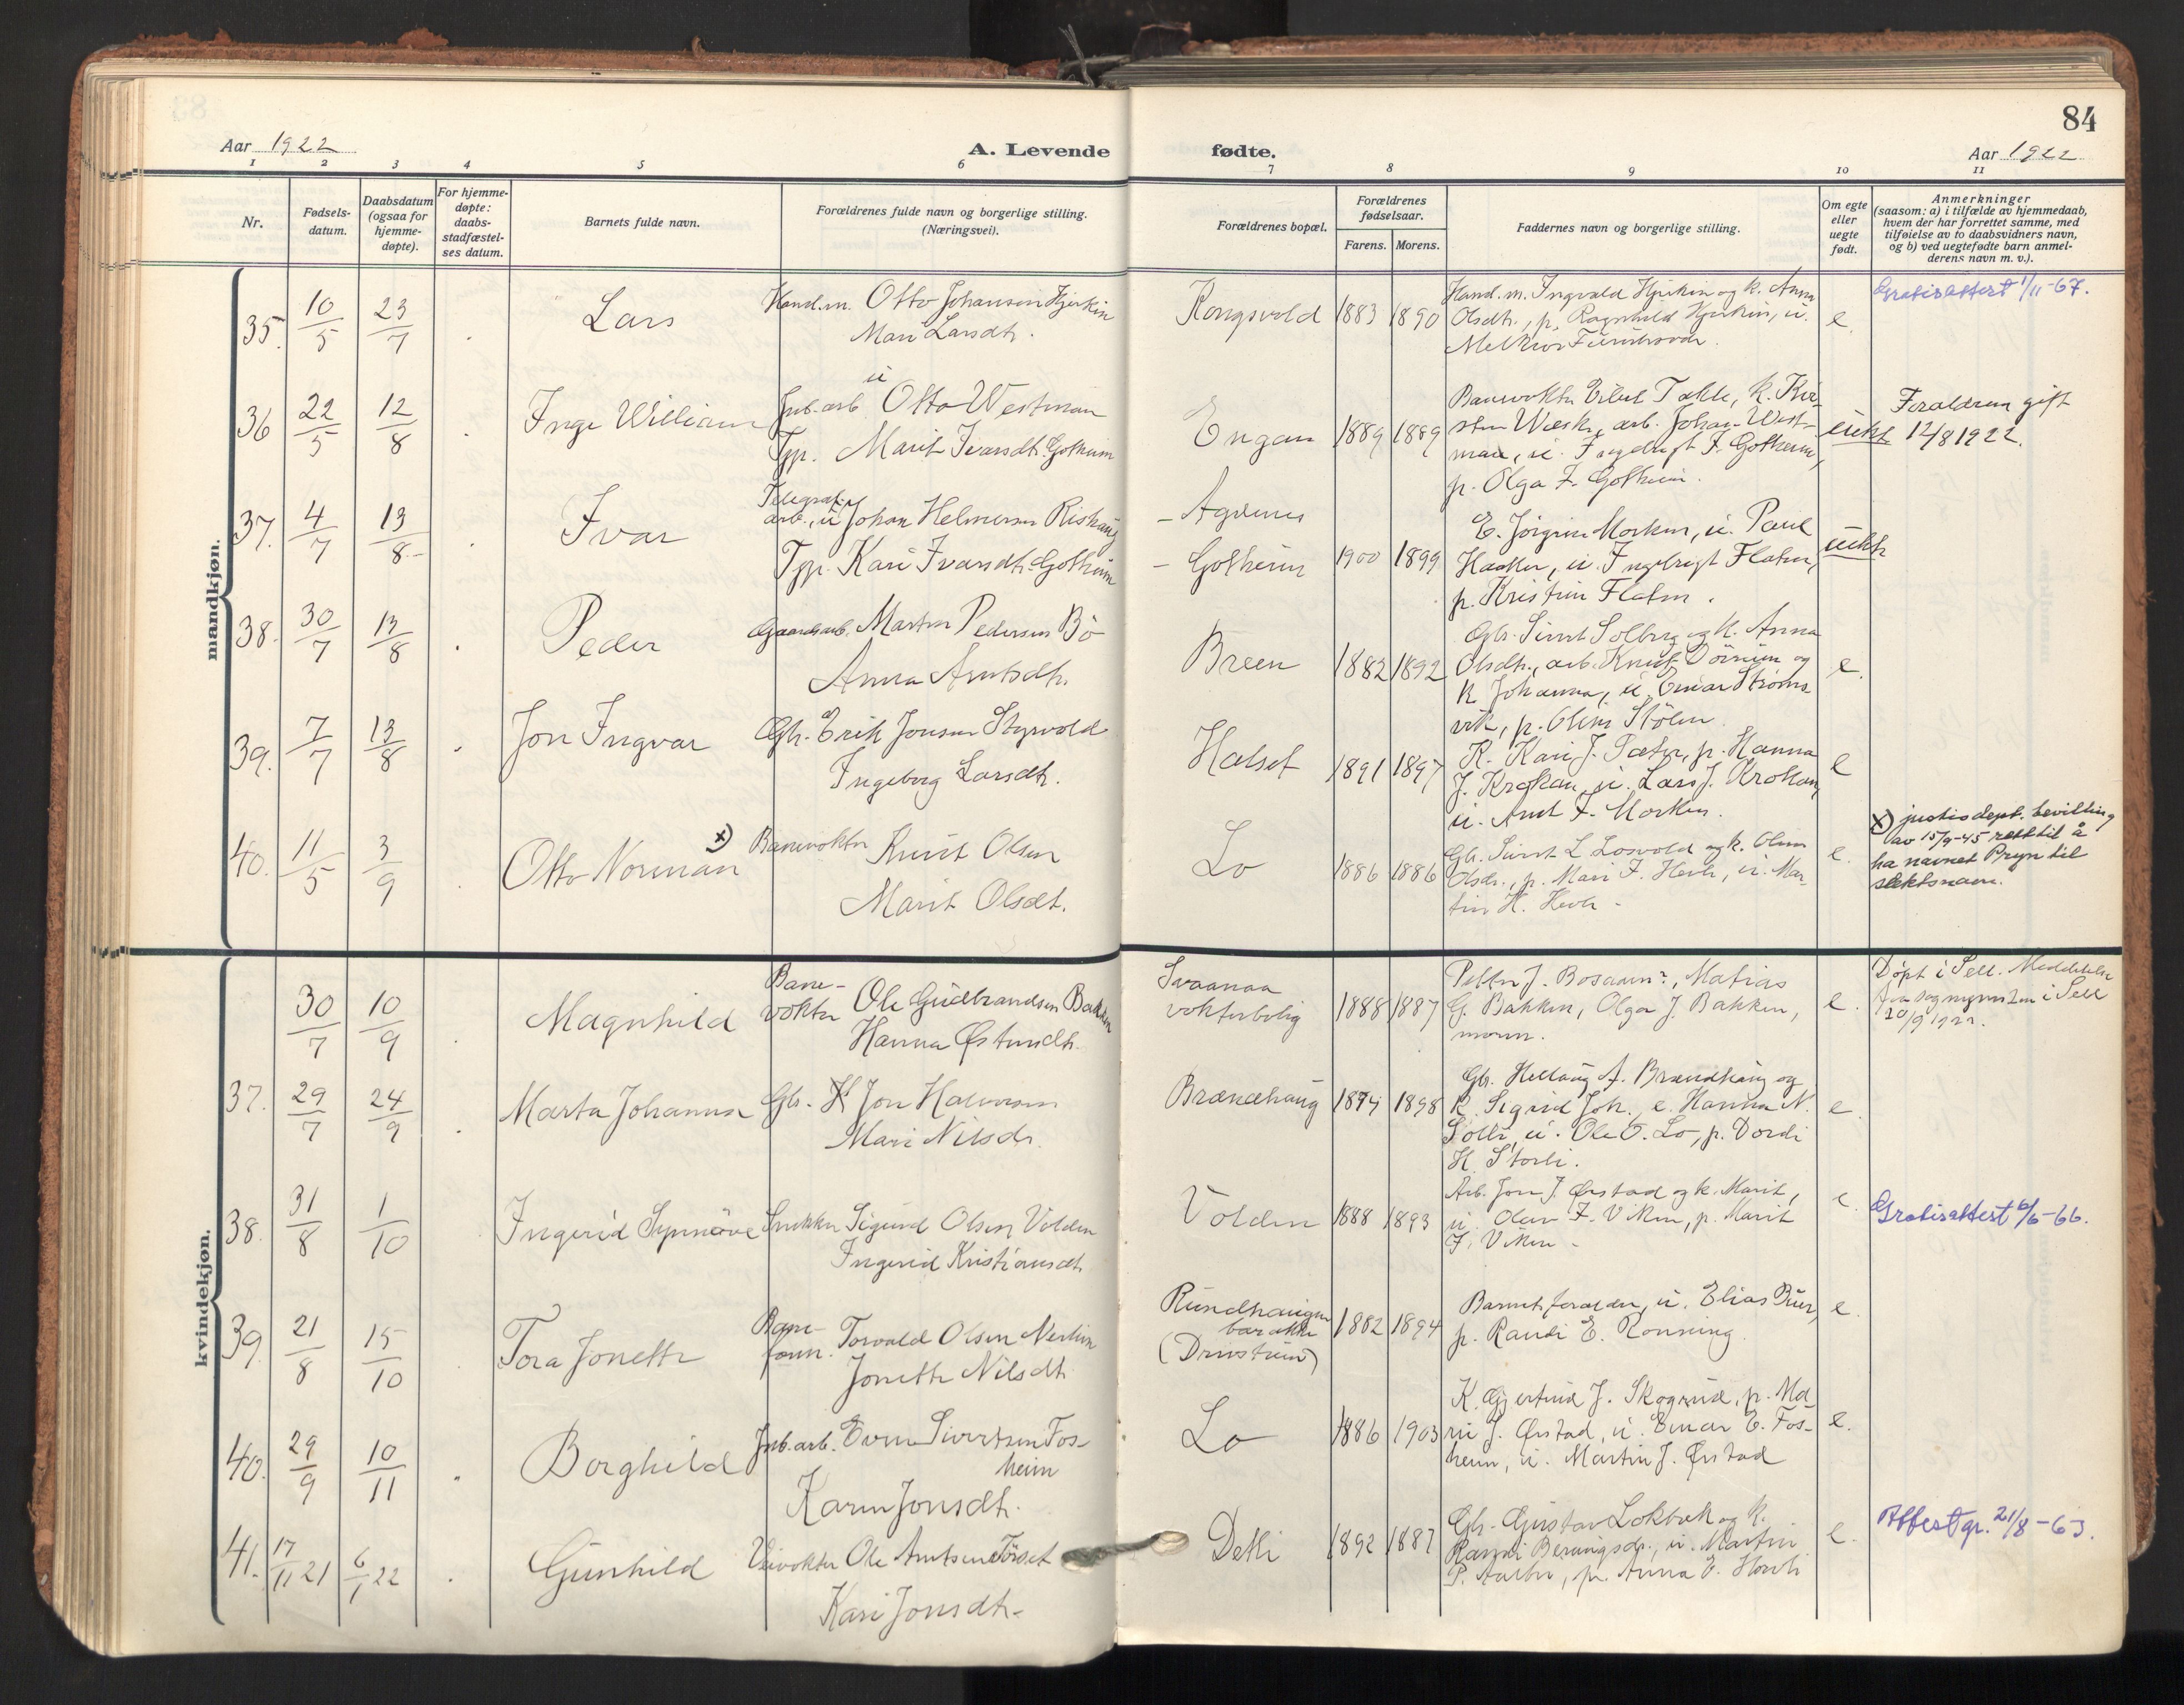 84
Aar 1922
A. Levende fødte.
Aar 1922
1 2 3 4 5 6 7 8 9 10 11
Nr.
Fødsels-
datum.
Daabsdatum
(ogsaa for
hjemme-
døpte).
For hjemme-
døpte:
daabs-
stadfæstel-
ses datum.
Barnets fulde navn.
Forældrenes fulde navn og borgerlige stilling.
(Næringsvei).
Forældrenes bopæl.
Forældrenes
fødselsaar.
Farens. Morens.
Faddernes navn og borgerlige stilling.
Om egte
eller
uegte
født.
Anmerkninger
(saasom: a) i tilfælde av hjemmedaab,
hvem der har forrettet samme, med
tilføielse av to daabsvidners navn,
og b) ved uegtefødte barn anmel-
derens navn m. v.).
mandkjøn.
35. 10/5 23/7 Lars
Hand.m. Otto Johansen Hjerkin
Mari Larsdt.
Kongsvold 1883 1890
Hand.m. Ingvald Hjerkin og k. Anna
Olsdt., p. Ragnhild Hjerkin, u.
Melkior
e.
Gratisattest 1/11-67.
36 22/5 12/8 Inge William
Jnb.arb. u Otto Westman
Tjp. Marit Ivarsdt. Gotheim
Engan 1889 1889
Banevokter Eilert Takle, k. Kir-
sten Wæsk, arb. Johan West-
man, u. Ingebrigt I. Gotheim,
p. Olga I. Gotheim.
uekt
Foræeldrene gift
12/8 1922.
37. 4/7 13/8 Ivar
Telegraf-
arb., u Johan Helmersen Rishaug
Tjp. Kari Ivarsdt. Gotheim
- Agdenes
- Gotheim 1900 1899
E. Jörgine Morken, u. Paul
Haaker, u. Ingebrigt Flaten,
p. Kristine Flaten.
uekte
38. 30/7 13/8 Peder
Gaardsarb. Martin Pedersen Bö
Anna Arntsdt.
Breen 1882 1892
Gbr. Sivert Solberg og k. Anna
Olsdt., arb. Knut Dörrum og
k. Johanna, u. Einar Ströms-
vik, p. Oline Stölen.
e.
39. 7/7 13/8 Jon Ingvar
Gbr. Erik Jonsen Styrvold
Ingeborg Larsdt.
Halset 1891 1897
K. Kari J. Sæter, p. Hanna
J. Krokan, u. Lars J. Krokan,
u. Arnt I. Morken.
e
40. 11/5 3/9 Otto Norman x)
Banevokter Knut Olsen
Marit Olsdt.
Lo 1886 1886
Gbr. Sivert L Losvold og k. Oline
Olsdr., p. Mari I. Hevle, u. Mar-
tin H. Hevle.
e.
x) justisdept. bevilling
av 15/9-45 rett til å
ha navnet Pryn til
slektsnavn.
kvindekjøn.
30/7 10/9 Magnhild
Bane-
vokter Ole Gudbrandsen Bakken
Hanna Østensdt.
Svaanaa
vokterbolig 1888 1887
Petter J. Bosaum?, Matias
G. Bakken, Olga J. Bakken,
moren.
e.
Döpt i Sell. Meddelelse
fra sognepresten i Sell
20/9 1922.
37. 29/7 24/9 Marta Johanna
Gbr. Jon Halvorsen
Mari Nilsdr.
Brændhaug 1874 1898
Gbr. Hellaug A. Brændhaug og
k. Sigrid Joh., e. Hanna N.
Solli, u. Ole O. Lo, p. Dordi
H. Storli.
e.
38. 31/8 1/10 Ingerid Synnöve
Snekker Sigurd Olsen Volden
Ingerid Kristiansdt.
Volden 1888 1893
Arb. Jon J. Ørstad og k. Marit,
u. Olav I. Viken, p. Marit
I. Viken.
e.
Gratisattest 6/6-66.
39. 21/8 15/10 Tora Jonette
Bane-
form. Torvald Olsen Merlin
Jonette Nilsdt.
Rundhaugen
barakke
(Drivstuen) 1882 1894
Barnets foreldre, u. Elias Buer,
p. Randi E. Rönning.
e.
40. 29/9 10/11 Borghild
Jnb.arb. Even Sivertsen Fos-
heim
Karen Jonsdt.
Lo 1886 1903
K. Gjertrud J. Skogrud, p. Ma-
rie J. Ørstad, u. Einar E. Fos-
heim, u. Martin J. Ørstad
e.
41. 17/11 21 6/1 22 Gunhild
Veivokter Ole Arntsen Törset
Kari Jonsdt.
Detli 1892 1887
Gbr. Gustav Lökbek og k.
Randi Beringsdr., u. Martin
P. Aalbu, p. Anna E. Hovli
e.
Attest gr. 21/8-63.